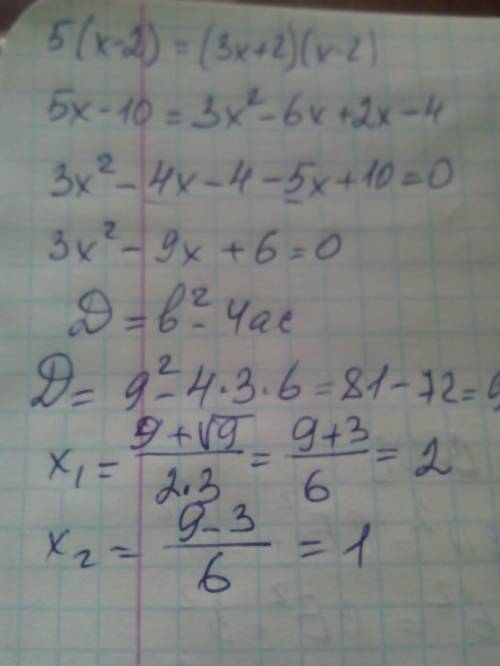 5(x-2) = (3x+2)(x-2)
5x-10 = 3x² - 6x + 2x - 4
3x² - 4x - 4 - 5x + 10 = 0
3x² - 9x + 6 = 0
Д = b² - 4ac
Д = 9² - 4·3·6 = 81 - 72 = 9
x₁ = (9+√9)/(2·3) = (9+3)/6 = 2
x₂ = (9-3)/6 = 1